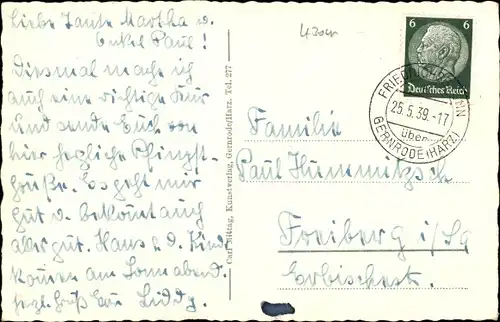 Liebe Tante Martha u.
Onkel Paul!
Diesmal mache ich
auch eine richtige Kur
und sende Euch von
hier herzliche Pfingst-
grüße. Es geht mir
gut u. bekommt auch
aber gut. Hans u. d. Kinder
kommen am Sonnabend.
herzl. Gruß Eure Liddy.
Carl Mittag, Kunstverlag, Gernrode/Harz. Tel. 277
6 6
Deutsches Reich
25.5.39.-17
über
GERNRODE (HARZ)
Familie
Paul
Freiberg i/Sa